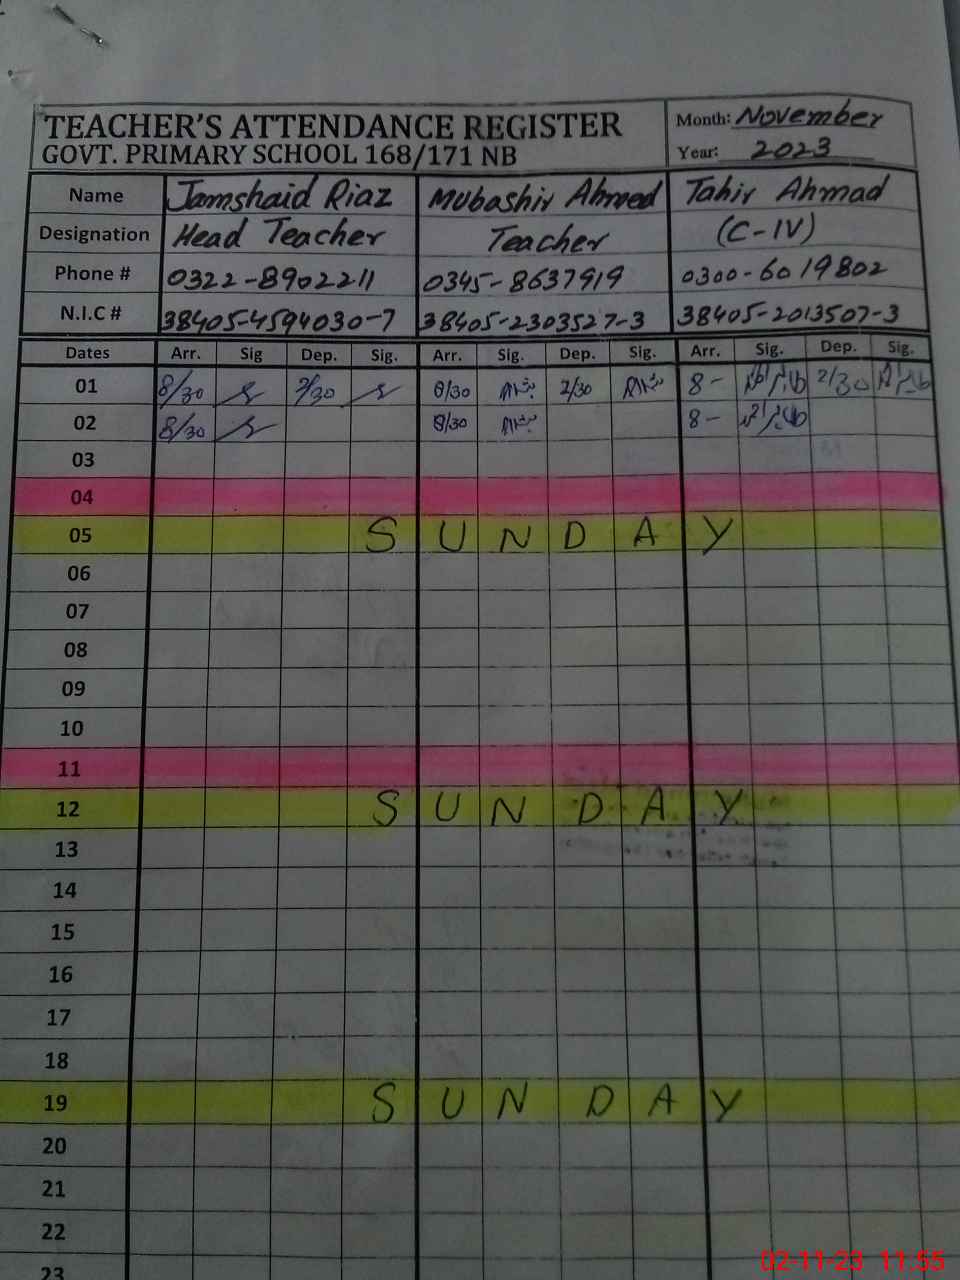 TEACHER'S ATTENDANCE REGISTER
GOVT. PRIMARY SCHOOL 168/171 NB
Month: November
Year: 2023
Name Jamshaid Riaz Mubashir Ahmed Tahir Ahmad
Designation Head Teacher Teacher (C-IV)
Phone # 0322-8902211 0345-8637919 0300-6019802
N.I.C # 38405-4594030-7 38405-2303527-3 38405-2013507-3
Dates Arr. Sig Dep. Sig. Arr. Sig. Dep. Sig. Arr. Sig. Dep. Sig.
01 8/30 2/30 8/30 2/30 8- 2/30
02 8/30 8/30 8-
03
04
05 SUNDAY
06
07
08
09
10
11
12 SUNDAY
13
14
15
16
17
18
19 SUNDAY
20
21
22
23
02-11-23 11:55